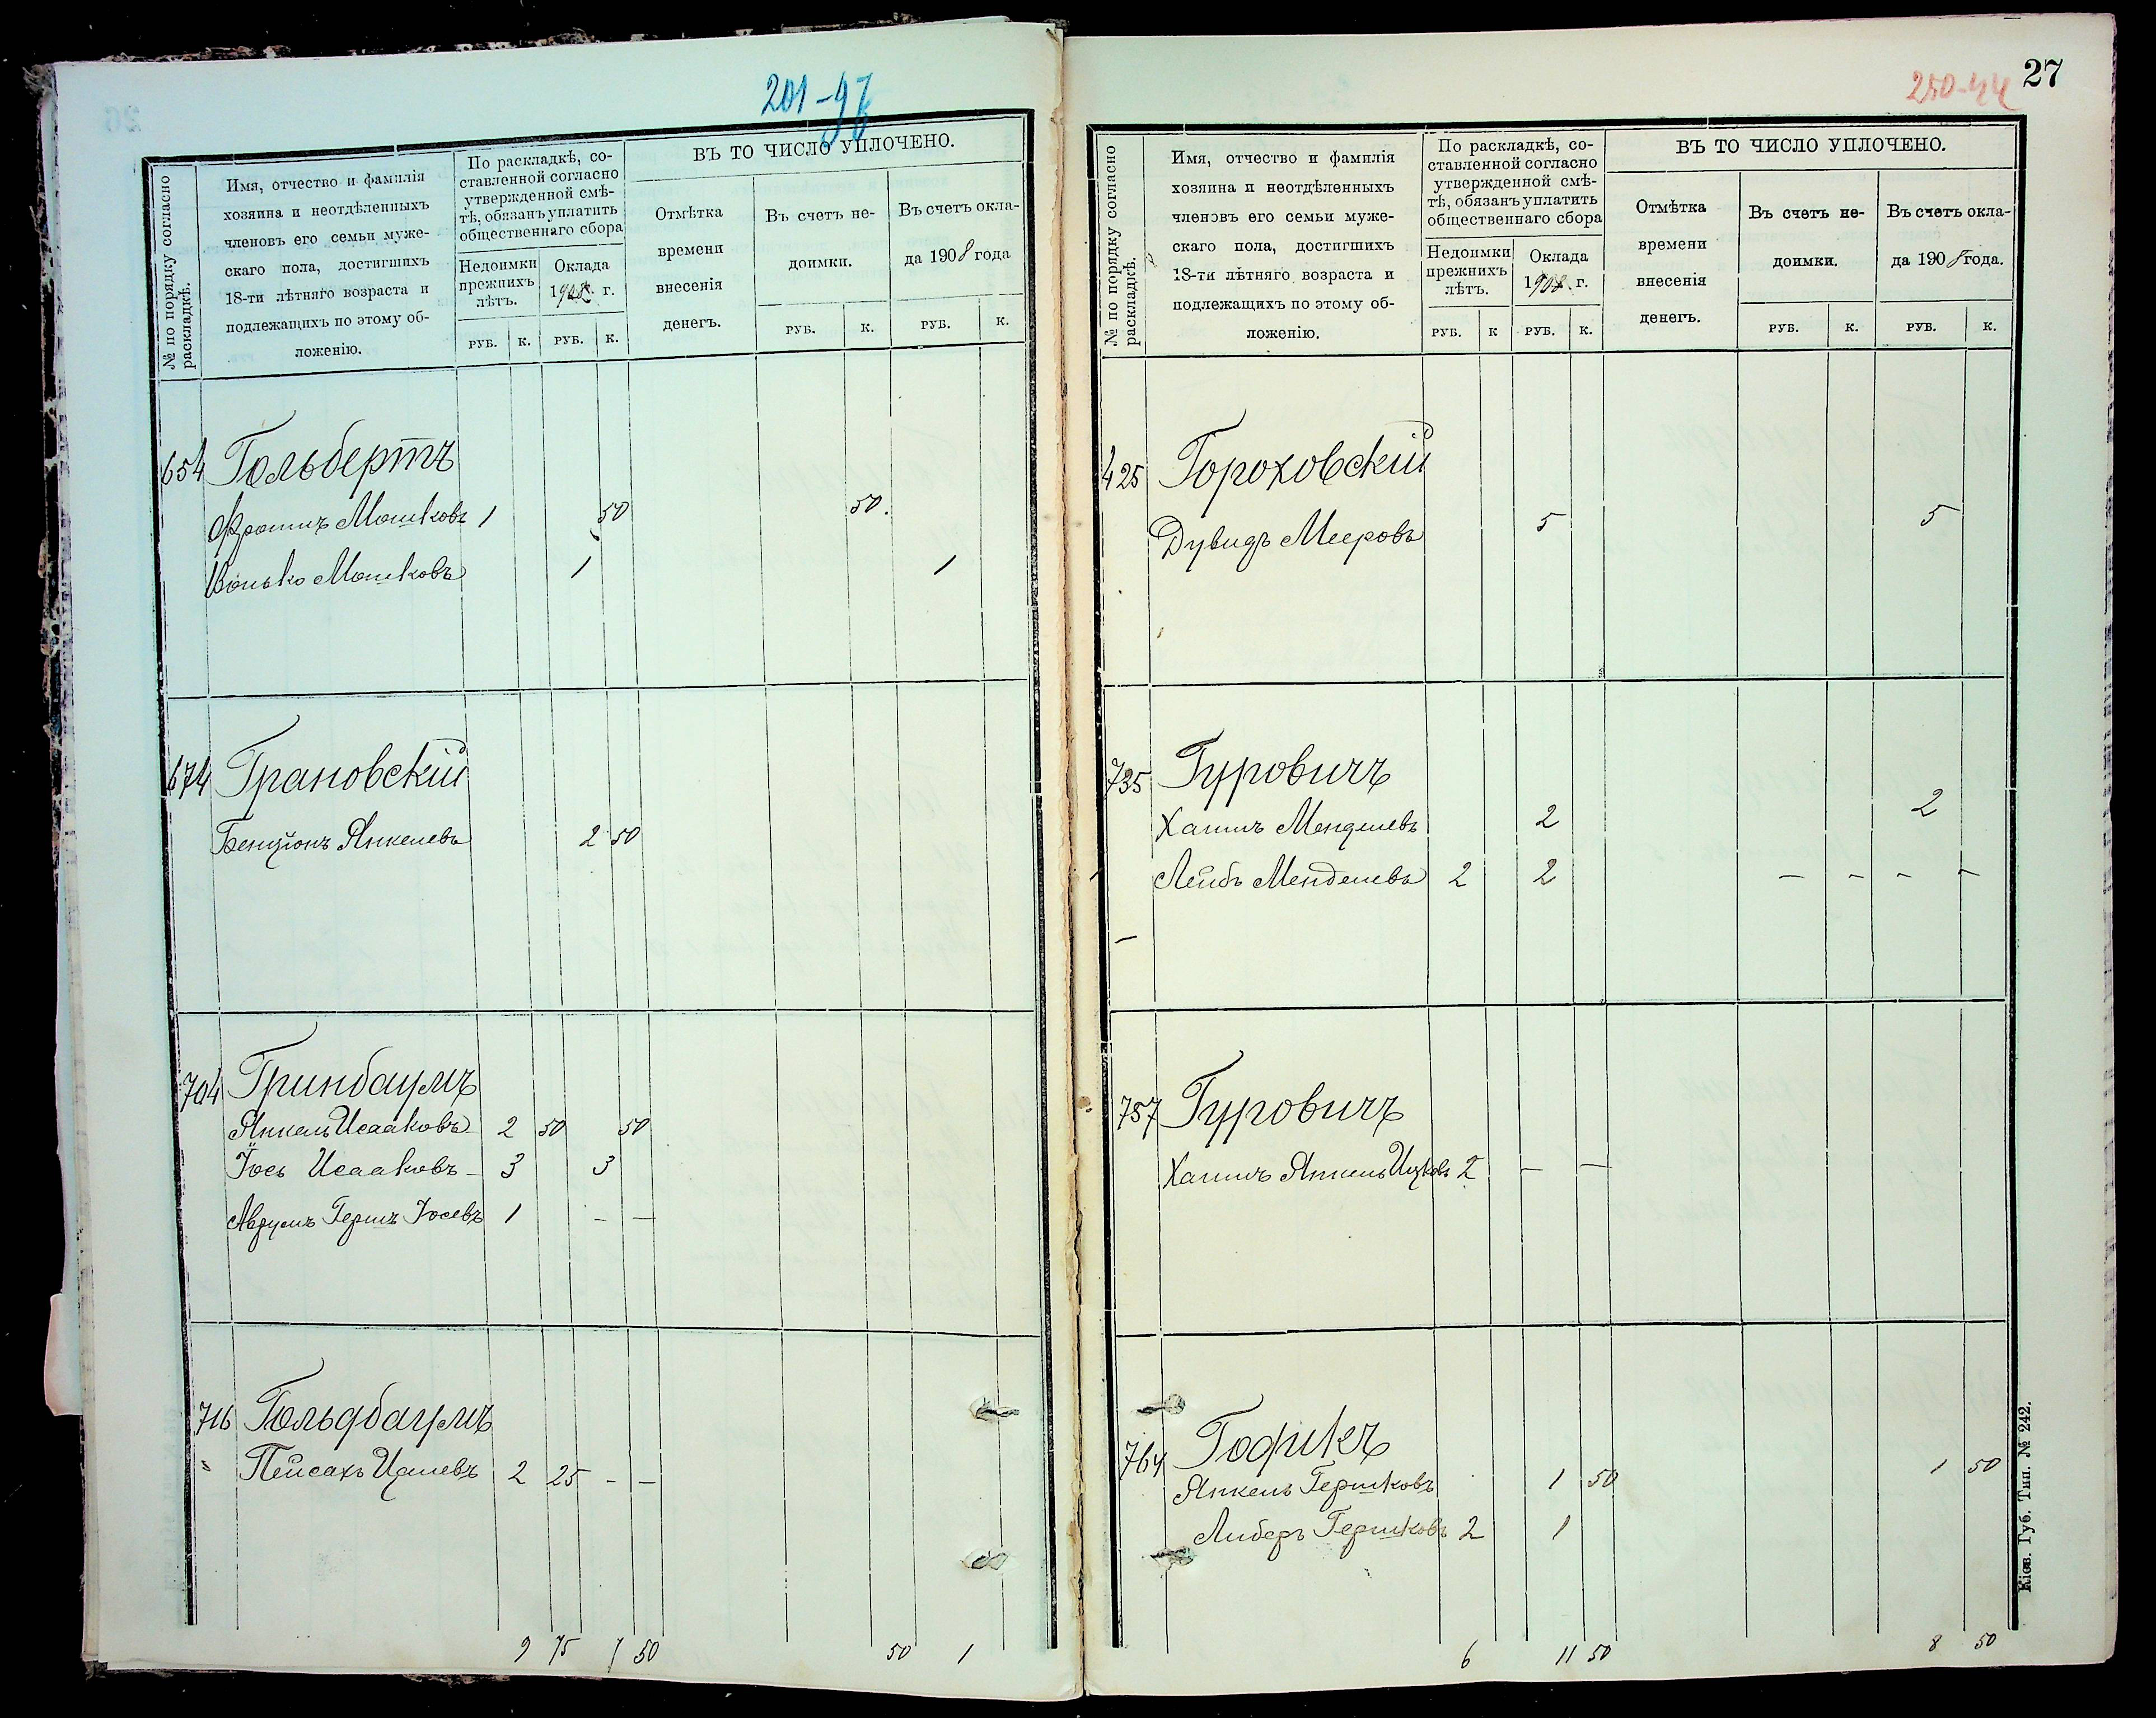 201-97
№ по порядку согласно раскладкѣ.
Имя, отчество и фамилія
хозяина и неотдѣленныхъ
членовъ его семьи муже-
скаго пола, достигшихъ
18-ти лѣтняго возраста и
подлежащихъ по этому об-
ложенію.
По раскладкѣ, со-
ставленной согласно
утвержденной смѣ-
тѣ, обязанъ уплатить
общественнаго сбора
Недоимки
прежнихъ
лѣтъ.
Оклада
1908 г.
РУБ. К. РУБ. К.
ВЪ ТО ЧИСЛО УПЛОЧЕНО.
Отмѣтка
времени
внесенія
денегъ.
Въ счетъ не-
доимки.
Въ счетъ окла-
да 1908 года
РУБ. К. РУБ. К.
654 Гольбертъ
Фроимъ Мошковъ 1 50 50.
Волько Мошковъ 1 1
674 Грановскій
Бенціонъ Янкелевъ 2 50
704 Гринбаумъ
Янкель Исааковъ 2 50 50
Іось Исааковъ - 3 3
Аврумъ Гершъ Іосевъ 1 - -
716 Гольдбаумъ
Пейсахъ 2 25 - -
9 75 7 50 50 1
250-44
27
№ по порядку согласно раскладкѣ.
Имя, отчество и фамилія
хозяина и неотдѣленныхъ
членовъ его семьи муже-
скаго пола, достигшихъ
18-ти лѣтняго возраста и
подлежащихъ по этому об-
ложенію.
По раскладкѣ, со-
ставленной согласно
утвержденной смѣ-
тѣ, обязанъ уплатить
общественнаго сбора
Недоимки
прежнихъ
лѣтъ.
Оклада
1908 г.
РУБ. К РУБ. К.
ВЪ ТО ЧИСЛО УПЛОЧЕНО.
Отмѣтка
времени
внесенія
денегъ.
Въ счетъ не-
доимки.
Въ счетъ окла-
да 1908 года.
РУБ. К. РУБ. К.
425 Гороховскій
Дувидъ Мееровъ 5 5
735 Гуровичъ
Хаимъ Менделевъ 2 2
Лейбъ Менделевъ 2 2 - - - -
757 Гуровичъ
Хаимъ Янкель Ицковъ 2 - -
764 Гофикъ
Янкель Гершковъ 1 50 1 50
Либеръ Гершковъ 2 1
6 11 50 8 50
Кіев. Губ. Тип. № 242.